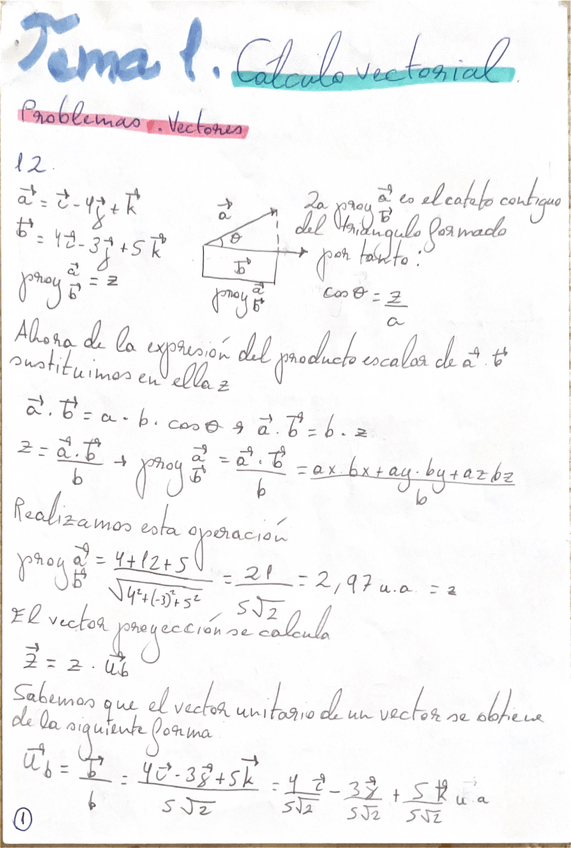 Tema 1. Cálculo vectorial.
Problemas. Vectores
12.
a⃗ = i⃗ - 4j⃗ + k⃗
b⃗ = 4i⃗ - 3j⃗ + 5k⃗
proy a⃗ b⃗ = z
a⃗
θ
b⃗
proy a⃗ b⃗
La proy a⃗ b⃗ es el cateto contiguo
del triángulo formado
por tanto:
cos θ = z/a
Ahora de la expresión del producto escalar de a⃗ · b⃗
sustituimos en ella z
a⃗ · b⃗ = a · b · cos θ → a⃗ · b⃗ = b · z
z = a⃗ · b⃗ / b → proy a⃗ b⃗ = a⃗ · b⃗ / b = ax · bx + ay · by + az bz / b
Realizamos esta operación
proy a⃗ b⃗ = 4+12+5 / √4²+(-3)²+5² = 21 / 5√2 = 2,97 u.a = z
El vector proyección se calcula
z⃗ = z · u⃗b
Sabemos que el vector unitario de un vector se obtiene
de la siguiente forma
u⃗b = b⃗ / b = 4i⃗ - 3j⃗ + 5k⃗ / 5√2 = 4 i⃗ / 5√2 - 3j⃗ / 5√2 + 5k⃗ / 5√2 u.a
1